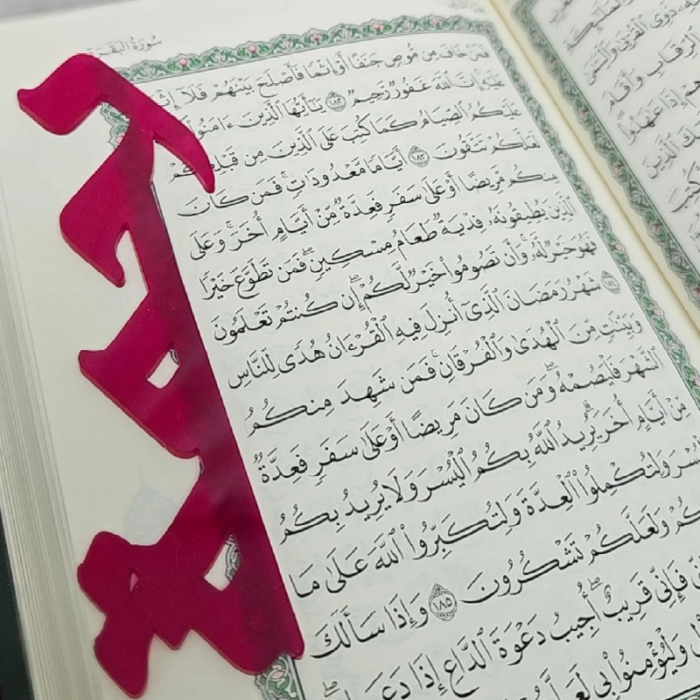 سُورَةُ البَقَرَةِ
فَمَنْ خَافَ مِن مُّوصٍ جَنَفًا أَوْ إِثْمًا فَأَصْلَحَ بَيْنَهُمْ فَلَآ إِثْ
عَلَيْهِ إِنَّ ٱللَّهَ غَفُورٌ رَّحِيمٌ ١٨٢ يَـٰٓأَيُّهَا ٱلَّذِينَ ءَامَنُوا۟
عَلَيْكُمُ ٱلصِّيَامُ كَمَا كُتِبَ عَلَى ٱلَّذِينَ مِن قَبْلِكُمْ
لَعَلَّكُمْ تَتَّقُونَ ١٨٣ أَيَّامًا مَّعْدُودَٰتٍ فَمَن كَانَ
مِنكُم مَّرِيضًا أَوْ عَلَىٰ سَفَرٍ فَعِدَّةٌ مِّنْ أَيَّامٍ أُخَرَ وَعَلَى
ٱلَّذِينَ يُطِيقُونَهُۥ فِدْيَةٌ طَعَامُ مِسْكِينٍ فَمَن تَطَوَّعَ خَيْرًا
فَهُوَ خَيْرٌ لَّهُۥ وَأَن تَصُومُوا۟ خَيْرٌ لَّكُمْ إِن كُنتُمْ تَعْلَمُونَ
١٨٤ شَهْرُ رَمَضَانَ ٱلَّذِىٓ أُنزِلَ فِيهِ ٱلْقُرْءَانُ هُدًى لِّلنَّاسِ
وَبَيِّنَـٰتٍ مِّنَ ٱلْهُدَىٰ وَٱلْفُرْقَانِ فَمَن شَهِدَ مِنكُمُ
ٱلشَّهْرَ فَلْيَصُمْهُ وَمَن كَانَ مَرِيضًا أَوْ عَلَىٰ سَفَرٍ فَعِدَّةٌ
مِّنْ أَيَّامٍ أُخَرَ يُرِيدُ ٱللَّهُ بِكُمُ ٱلْيُسْرَ وَلَا يُرِيدُ بِكُمُ
سْرَ وَلِتُكْمِلُوا۟ ٱلْعِدَّةَ وَلِتُكَبِّرُوا۟ ٱللَّهَ عَلَىٰ مَا
كُمْ وَلَعَلَّكُمْ تَشْكُرُونَ ١٨٥ وَإِذَا سَأَلَكَ
فَإِنِّى قَرِيبٌ أُجِيبُ دَعْوَةَ ٱلدَّاعِ إِذَا دَعَا
وَلْيُؤْمِنُوا۟ بِى